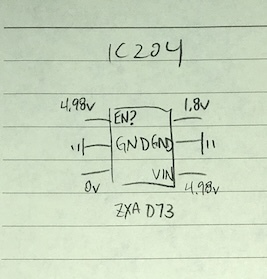 IC204
4.98v 1.8v
EN?
GND GND
VIN
0v 4.98v
ZXA D73